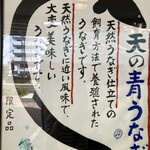 天の青うなぎ
天然うなぎ仕立ての
飼育方法で養殖された
うなぎです。
天然うなぎに近い風味で、
大変美味しい
うなぎです。
限定品